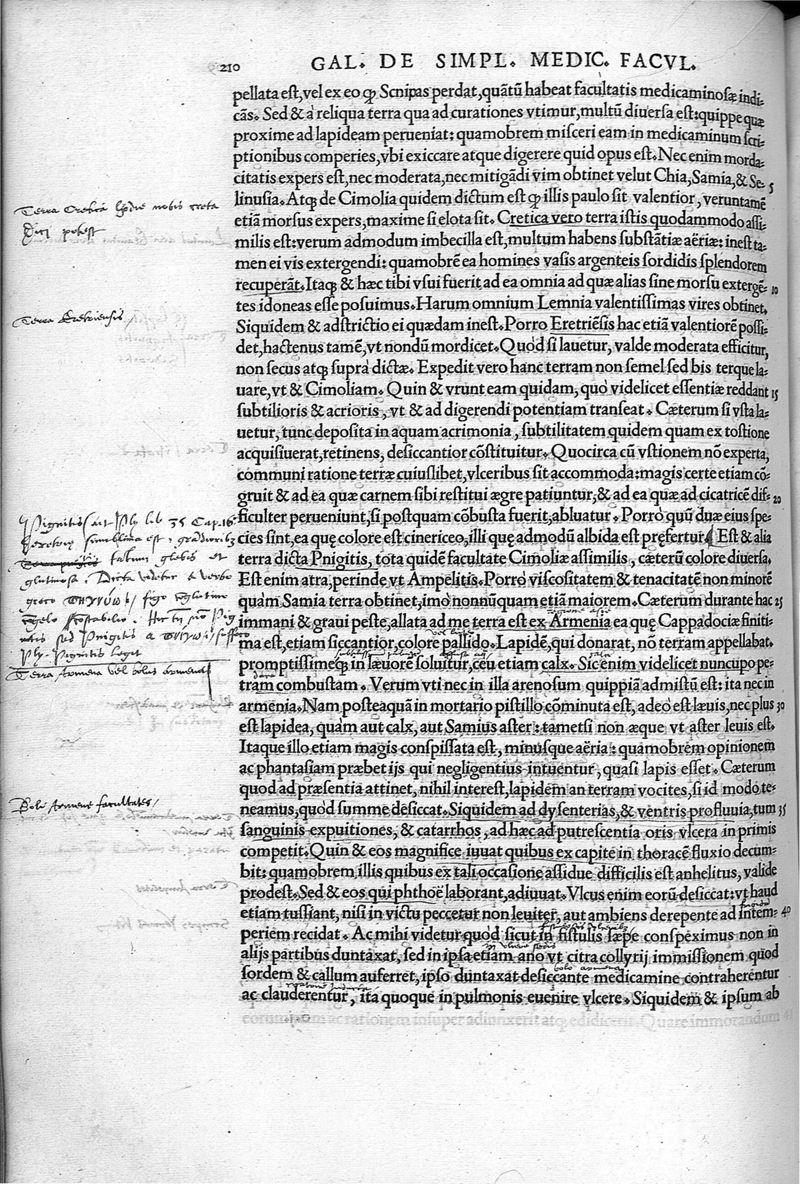 210 GAL. DE SIMPL. MEDIC. FACVL.
pellata est, vel ex eo qp Scnipas perdat, quãtũ habeat facultatis medicaminosæ indi-
cãs. Sed & à reliqua terra qua ad curationes vtimur, multũ diuersa est: quippe quæ
proxime ad lapideam perueniat: quamobrem misceri eam in medicaminum scri-
ptionibus comperies, vbi exiccare atque digerere quid opus est. Nec enim morda-
citatis expers est, nec moderata, nec mitigãdi vim obtinet velut Chia, Samia, & Se- 5
linusia. Atq; de Cimolia quidem dictum est qp illis paulo sit valentior, veruntamẽ
Terra Cretica hodie nobis creta
etiã morsus expers, maxime si elota sit. Cretica vero terra istis quodammodo assi-
dici potest
milis est: verum admodum imbecilla est, multum habens substãtiæ aëriæ: inest ta-
men ei vis extergendi: quamobrẽ ea homines vasis argenteis sordidis splendorem
recuperãt. Itaq; & hæc tibi vsui fuerit ad ea omnia ad quæ alias sine morsu extergẽ- 10
tes idoneas esse posuimus. Harum omnium Lemnia valentissimas vires obtinet.
Terra Eretriensis
Siquidem & adstrictio ei quædam inest. Porro Eretriẽsis hac etiã valentiorẽ possi-
det, hactenus tamẽ, vt nondũ mordicet. Quod si lauetur, valde moderata efficitur,
non secus atq; supra dictæ. Expedit vero hanc terram non semel sed bis terque la-
uare, vt & Cimoliam. Quin & vrunt eam quidam, quo videlicet essentiæ reddant 15
subtilioris & acrioris, vt & ad digerendi potentiam transeat. Cæterum si vsta la-
uetur, tunc deposita in aquam acrimonia, subtilitatem quidem quam ex tostione
acquisiuerat, retinens, desiccantior cõstituitur. Quocirca cũ vstionem nõ experta,
communi ratione terræ cuiuslibet, vlceribus sit accommoda: magis certe etiam cõ-
gruit & ad ea quæ carnem sibi restitui ægre patiuntur, & ad ea quæ ad cicatricẽ dif- 20
Pignitis ait Ply lib 35 Cap. 16
ficulter perueniunt, si postquam cõbusta fuerit, abluatur. Porro quũ duæ eius spe-
Eretriæ simillima est, grandioribus
cies sint, ea quę colore est cinericeo, illi quę admodũ albida est pręfertur. Est & alia
tatum glebis et
terra dicta Pnigitis, tota quidẽ facultate Cimoliæ assimilis, cæterũ colore diuersa.
glutinosa. Dicta videtur a verbo
Est enim atra, perinde vt Ampelitis. Porro viscositatem & tenacitatẽ non minorẽ
græco
quàm Samia terra obtinet, imo nonnũquam etiã maiorem. Cæterum durante hac 25
immani & graui peste, allata ad me terra est ex Armenia ea quę Cappadociæ finiti-
ma est, etiam siccantior, colore pallido. Lapidẽ, qui donarat, nõ terram appellabat.
Ply. Pignitis legit
promptissimeq; in læuorẽ soluitur, ceu etiam calx. Sic enim videlicet nuncupo pe-
Terra Armena vel bolus armenus
tram combustam. Verum vti nec in illa arenosum quippiã admistũ est: ita nec in
armenia. Nam posteaquã in mortario pistillo cõminuta est, adeo est læuis, nec plus 30
est lapidea, quàm aut calx, aut Samius aster: tametsi non æque vt aster leuis est.
Itaque illo etiam magis conspissata est, minusque aëria: quamobrem opinionem
ac phantasiam præbet ijs qui negligentius intuentur, quasi lapis esset. Cæterum
quod ad præsentia attinet, nihil interest, lapidem an terram vocites, si id modo te-
Boli Armene facultates
neamus, quòd summe desiccat. Siquidem ad dysenterias, & ventris profluuia, tum 35
sanguinis expuitiones, & catarrhos, ad hæc ad putrescentia oris vlcera in primis
competit. Quin & eos magnifice iuuat quibus ex capite in thoracẽ fluxio decum-
bit: quamobrem illis quibus ex tali occasione assidue difficilis est anhelitus, valide
prodest. Sed & eos qui phthoë laborant, adiuuat. Vlcus enim eorũ desiccat: vt haud
etiam tussiant, nisi in victu peccetur non leuiter, aut ambiens derepente ad intem- 40
periem recidat. Ac mihi videtur quod sicut in fistulis sæpe conspeximus non in
alijs partibus duntaxat, sed in ipsa etiam ano vt citra collyrij immissionem quod
bolo armeno
sordem & callum auferret, ipso duntaxat desiccante medicamine contraherentur
ac clauderentur, ita quoque in pulmonis euenire vlcere. Siquidem & ipsum ab